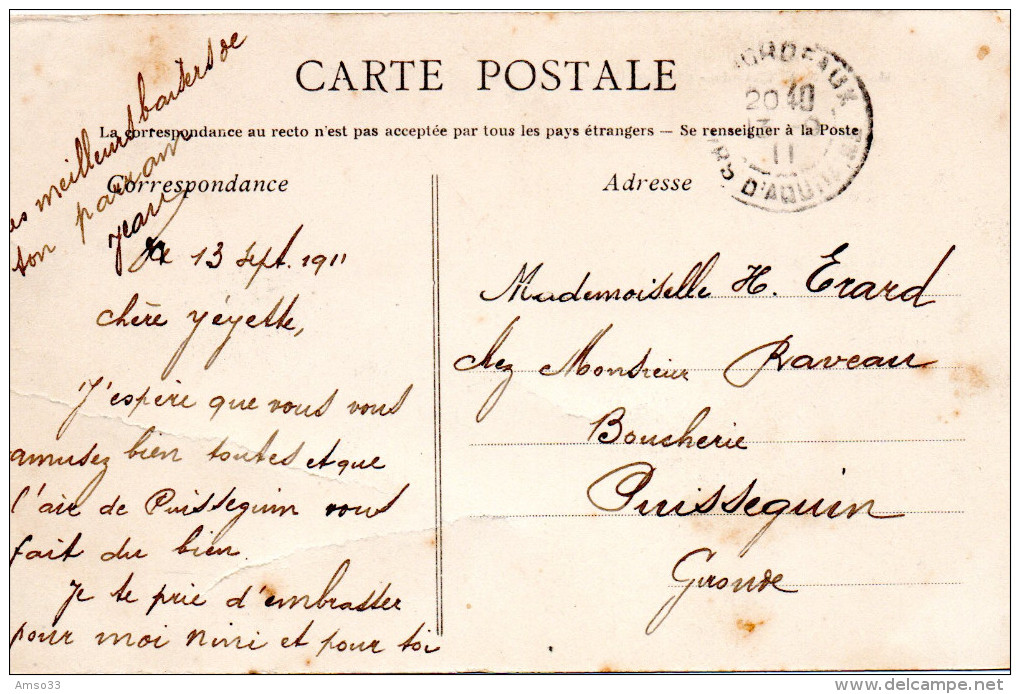 CARTE POSTALE
La correspondance au recto n'est pas acceptée par tous les pays étrangers — Se renseigner à la Poste
Correspondance
Adresse
BORDEAUX
20 40
13 9
11
CRS D'AQUITAINE
Le 13 sept. 1911
Chère yéyette,
J'espère que vous vous
amusez bien toutes et que
l'air de Puisseguin vous
fait du bien.
Je te prie d'embrasser
pour moi Nini et pour toi
les meilleurs baisers de
ton parrain
Jean
Mademoiselle H. Erard
chez Monsieur Raveau
Boucherie
Puisseguin
Gironde
Amso33
delcampe.net